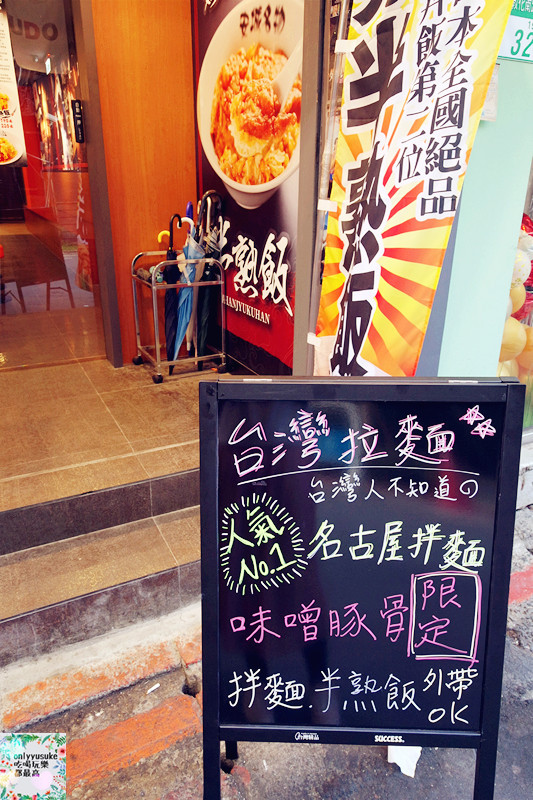 UDO
本全國絕品
丼飯第二位
半熟飯
32
半熟飯
HANJYUKUHAN
台灣拉麵
台灣人不知道の
人氣
No.1
名古屋拌麵
味噌豚骨
限定
拌麵.半熟飯
外帶
OK
SUCCESS.
onlyyusuke
吃喝玩樂
都最高